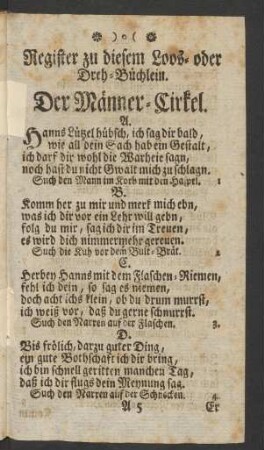 ) o (
Register zu diesem Loos- oder
Dreh-Büchlein.
Der Männer-Cirkel.
A.
Hanns Lützel hübsch, ich sag dir bald,
wie all dein Sach hab ein Gestalt,
ich darf dir wohl die Warheit sagn,
noch hast du nicht Gwalt mich zu schlagn.
Such den Mann im Korb mit den 1
B.
Komm her zu mir und merk mich ebn,
was ich dir vor ein Lehr will gebn,
folg du mir, sag ich dir im Treuen,
es wird dich nimmermehr gereuen.
Such die Kuh vor dem 2
C.
Herbey Hanns mit dem Flaschen-Riemen,
fehl ich dein, so sag es niemen,
doch acht ichs klein, ob du drum murrst,
ich weiß vor, daß du gerne schnurrst.
Such den Narren auf der Flaschen. 3.
D.
Bis frölich, darzu guter Ding,
ein gute Bothschaft ich dir bring,
ich bin schnell geritten manchen Tag,
daß ich dir flugs dein Meynung sag.
Such den Narren auf der Schnecken. 4.
A 5 Er